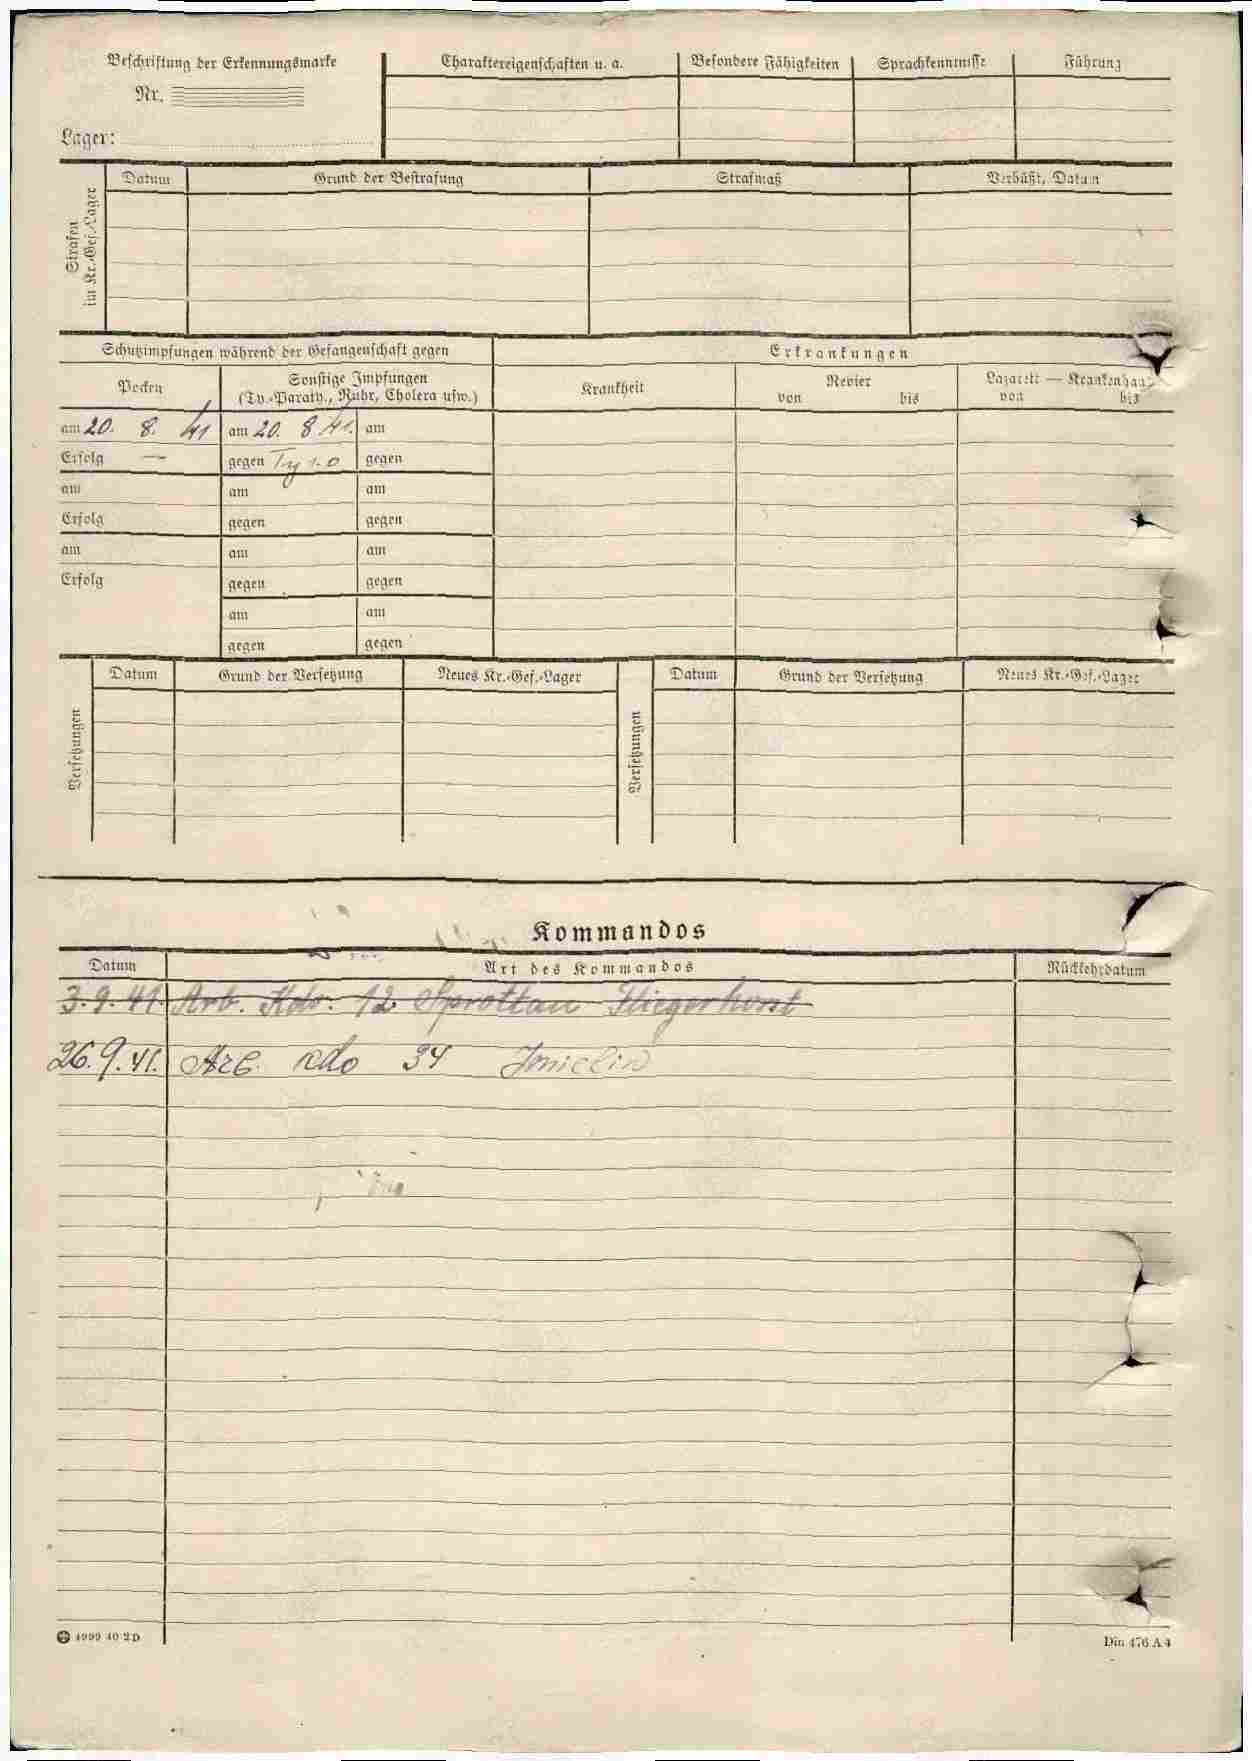 Beschriftung der Erkennungsmarke
Nr.
Lager:
Charaktereigenschaften u. a.
Besondere Fähigkeiten
Sprachkenntnisse
Führung
Strafen
im Kr.-Gef.-Lager
Datum
Grund der Bestrafung
Strafmaß
Verbüßt, Datum
Schutzimpfungen während der Gefangenschaft gegen
Erkrankungen
Pocken
Sonstige Impfungen
(Ty.-Paraty., Ruhr, Cholera usw.)
Krankheit
Revier
von bis
Lazarett — Krankenhaus
von bis
am 20. 8. 41 am 20. 8. 41. am
Erfolg — gegen Ty 1.0 gegen
am am am
Erfolg gegen gegen
am am am
Erfolg gegen gegen
am am
gegen gegen
Versetzungen
Datum Grund der Versetzung Neues Kr.-Gef.-Lager
Versetzungen
Datum Grund der Versetzung Neues Kr.-Gef.-Lager
Kommandos
Datum Art des Kommandos Rückkehrdatum
3.9.41. Arb. Kdo. 12 Sprottau Fliegerhorst
26.9.41. Arb. Kdo 34 Imielin
4999 40 2 D
Din 476 A 4